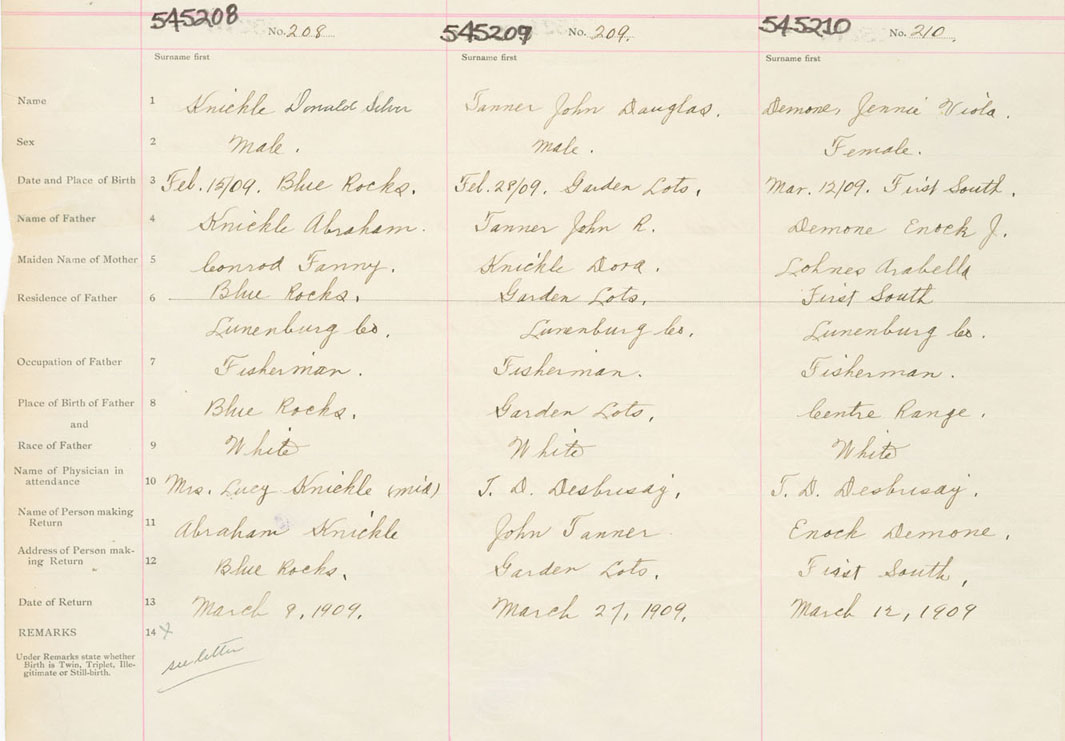 545208 No. 208 545209 No. 209. 545210 No. 210.
Surname first Surname first Surname first
Name 1 Knickle Donald Silver Tanner John Douglas. Demone, Jennie Viola.
Sex 2 Male. Male. Female.
Date and Place of Birth 3 Feb. 15/09. Blue Rocks. Feb. 28/09. Garden Lots. Mar. 12/09. First South.
Name of Father 4 Knickle Abraham. Tanner John R. Demone Enock J.
Maiden Name of Mother 5 Conrod Fanny. Knickle Dora. Lohnes Arabella
Residence of Father 6 Blue Rocks. Garden Lots. First South
Lunenburg Co. Lunenburg Co. Lunenburg Co.
Occupation of Father 7 Fisherman. Fisherman. Fisherman.
Place of Birth of Father 8 Blue Rocks. Garden Lots. Centre Range.
and
Race of Father 9 White White White
Name of Physician in
attendance 10 Mrs. Lucy Knickle (mid) T. D. Desbrisay. T. D. Desbrisay.
Name of Person making
Return 11 Abraham Knickle John Tanner Enock Demone.
Address of Person mak-
ing Return 12 Blue Rocks. Garden Lots. First South,
Date of Return 13 March 9, 1909. March 27, 1909. March 12, 1909
REMARKS 14 X
Under Remarks state whether
Birth is Twin, Triplet, Ille-
gitimate or Still-birth.
see letter